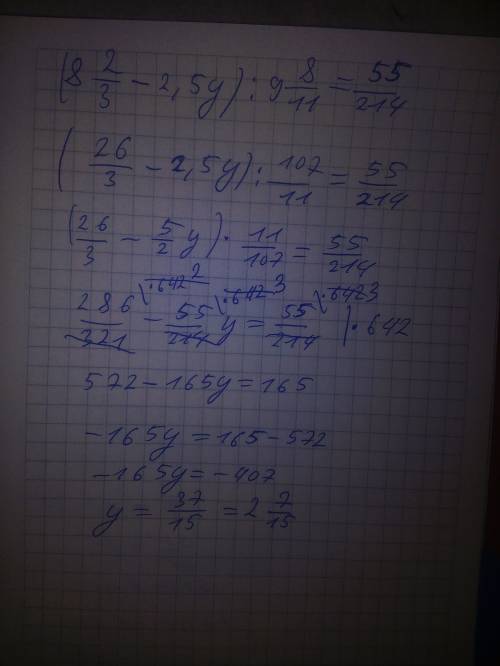 (8 2/3 - 2,5y) : 9 8/11 = 55/214
(26/3 - 2,5y) : 107/11 = 55/214
(26/3 - 5/2 y) · 11/107 = 55/214
·642 2 ·642 3 ·642 3
286/321 - 55/214 y = 55/214 | · 642
572 - 165y = 165
-165y = 165 - 572
-165y = -407
y = 37/15 = 2 7/15